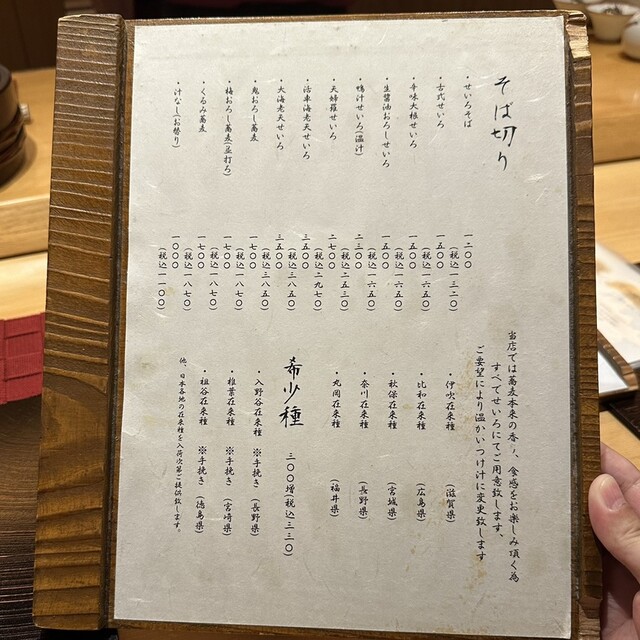 そば切り
・せいろそば 一二〇〇
(税込一三二〇)
・古式せいろ 一五〇〇
(税込一六五〇)
・辛味大根せいろ 一五〇〇
(税込一六五〇)
・生醤油おろしせいろ 一五〇〇
(税込一六五〇)
・鴨汁せいろ(温汁) 二三〇〇
(税込二五三〇)
・天婦羅せいろ 二七〇〇
(税込二九七〇)
・活車海老天せいろ 三五〇〇
(税込三八五〇)
・大海老天せいろ 三五〇〇
(税込三八五〇)
・鬼おろし蕎麦 一七〇〇
(税込一八七〇)
・梅おろし蕎麦 一七〇〇
(税込一八七〇)
・くるみ蕎麦 一七〇〇
(税込一八七〇)
・汁なし(お替り) 一〇〇〇
(税込一一〇〇)
当店では蕎麦本来の香り、食感をお楽しみ頂く為
すべてせいろにてご用意致します、
ご要望により温かいつけ汁に変更致します
・伊吹在来種 (滋賀県)
・比和在来種 (広島県)
・秋保在来種 (宮城県)
・奈川在来種 (長野県)
・丸岡在来種 (福井県)
希少種 三〇〇増(税込三三〇)
・入野谷在来種 ※手挽き(長野県)
・椎葉在来種 ※手挽き(宮崎県)
・祖谷在来種 ※手挽き(徳島県)
他、日本各地の在来種を入荷次第ご提供致します。